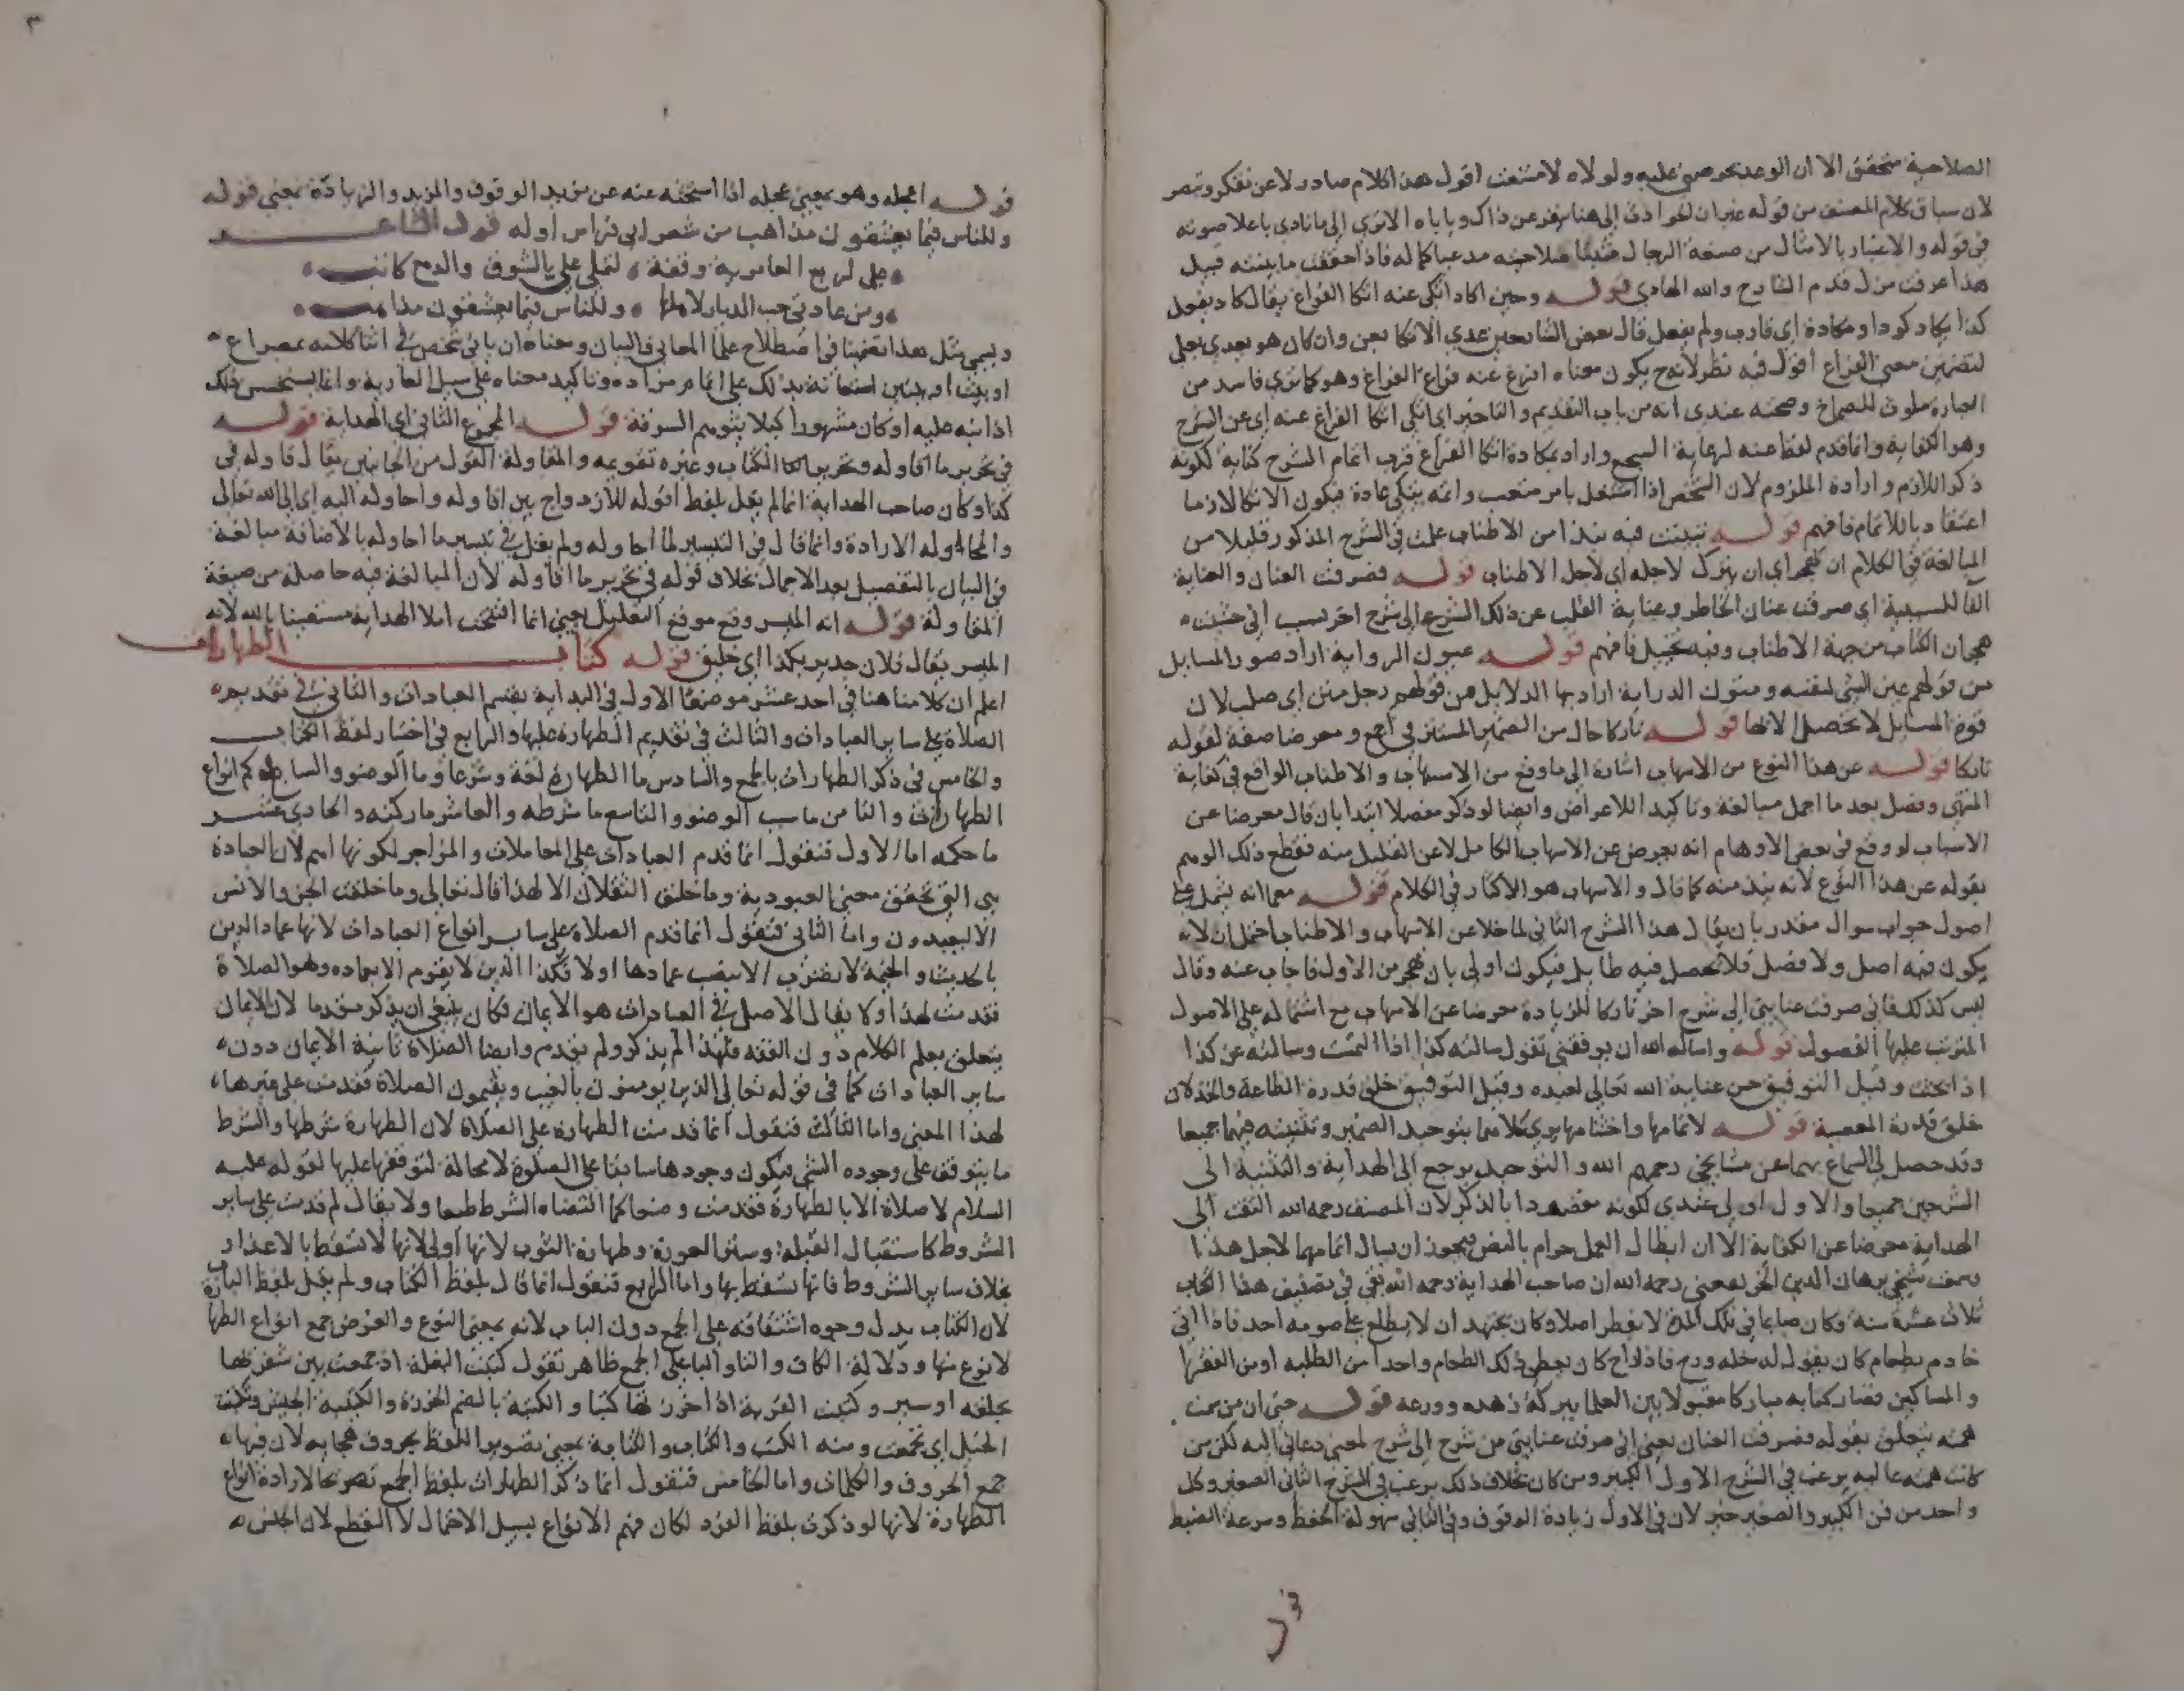 الصلاحية متحقق الا ان الوعد تحريض عليه ولولاه لامتنعت اقول هذا كلام صادر لا عن تفكر وتبصر
لان سياق كلام المصنف من قوله غير ان لحوادث الى هنا ينفر عن ذاك وياباه الا ترى الى ما نادى باعلا صوته
في قوله والاعتبار بالامثال من صنعة الرجال مثبتا صلاحيته مدعيا كماله فاذا حققت ما بينته قبيل
هذا عرفت مزل قدم الشارح والله الهادي قوله وحين اكاد اتكى عنه اتكا الفراغ يقال كاد يفعل
كذا يكاد كودا ومكادة اي قارب ولم يفعل قال بعض الشارحين عدي الاتكا بعن وان كان هو يعدي بعلى
لتضمين معنى الفراغ اقول فيه نظر لانه ح يكون معناه افرغ عنه فراغ الفراغ وهو كما ترى فاسد من
العبارة ملوث للصماخ وصحته عندى انه من باب التقديم والتاخير اي اتكى اتكا الفراغ عنه اي عن الشرح
وهو الكفاية وانما قدم لفظ عنه لرعاية السجع واراد بمكادة اتكا الفراغ قرب اتمام الشرح كناية لكونه
ذكر اللازم وارادة الملزوم لان الشخص اذا اشتغل بامر متعب واتمه يتكى عادة فيكون الاتكا لازما
اعتقاديا للاتمام فافهم قوله تبينت فيه نبذا من الاطناب علمت في الشرح المذكور قليلا من
المبالغة في الكلام ان يهجر اي ان يترك لاجله اي لاجل الاطناب قوله فصرفت العنان والعناية
الفا للسببية اي صرفت عنان الخاطر وعناية القلب عن ذلك الشرح الى شرح اخر بسب اني خشيت
هجران الكتاب من جهة الاطناب وفيه تخييل فافهم قوله عيون الرواية اراد صور المسايل
من قولهم عين الشي لنفسه ومتون الدراية اراد بها الدلايل من قولهم رجل متن اي صلب لان
قوة المسايل لا تحصل الا بها قوله تاركا حال من الضمير المستتر في اجمع ومعرضا صفة لقوله
تاركا قوله عن هذا النوع من الاسهاب اشارة الى ما وقع من الاسهاب والاطناب الواقع في كفاية
المنتهى وفصل بعد ما اجمل مبالغة وتاكيدا للاعراض وايضا لو ذكر مفصلا ابتدا بان قال معرضا عن
الاسباب لو وقع في بعض الاوهام انه يعرض عن الاسهاب الكامل لا عن القليل منه فقطع ذلك الوهم
بقوله عن هذا النوع لانه نبذ منه كما قال والاسهاب هو الاكثار في الكلام قوله مع ما انه يشمل على
اصول جواب سوال مقدر بان يقال هذا الشرح الثاني لما خلا عن الاسهاب والاطناب احتمل ان لا
يكون فيه اصل ولا فضل فلا تحصل فيه طايل فيكون اولى بان يهجر من الاول فاجاب عنه وقال
ليس كذلك فاني صرفت عنايتي الى شرح اخر تاركا للزيادة معرضا عن الاسهاب مع اشتماله على الاصول
المترتب عليها الفصول قوله واسال الله ان يوفقني تقول سالته كذا اذا التمست وسالته عن كذا
اذا بحثت وقيل التوفيق حسن عناية الله تعالى لعبده وقيل التوفيق خلق قدرة الطاعة والخذلان
خلق قدرة المعصية قوله لاتمامها واختتامها يروى كلاهما بتوحيد الضمير وتثنيته فيهما جميعا
وقد حصل لي السماع بهما عن مشايخي رحمهم الله والتوحيد يرجع الى الهداية والتثنية الى
الشرحين جميعا والاول اولى عندي لكونه مقصودا بالذكر لان المصنف رحمه الله التفت الى
الهداية معرضا عن الكفاية الا ان ابطال العمل حرام بالنص فيجوز ان يسال اتمامهما لاجل هذا
سمعت شيخي برهان الدين الخريفعني رحمه الله ان صاحب الهداية رحمه الله بقي في تصنيف هذا الكتاب
ثلاث عشرة سنة وكان صايما في تلك المدة لا يفطر اصلا وكان يجتهد ان لا يطلع على صومه احد فاذا اتى
خادم بطعام كان يقول له خله ورح فاذا راح كان يعطي ذلك الطعام واحدا من الطلبه او من الفقرا
والمساكين فصار كتابه مباركا مقبولا بين العلما ببركة زهده وورعه قوله حتى ان من سمت
همته يتعلق بقوله فصرفت العنان يعني اني صرفت عنايتي من شرح الى شرح لمعنى دعاني اليه لكن من
كانت همته عاليه يرغب في الشرح الاول الكبير ومن كان بخلاف ذلك يرغب في الشرح الثاني الصغير وكل
واحد من فن الكبير والصغير خير لان في الاول زيادة الوقوف وفي الثاني سهولة الحفظ وسرعة الضبط
قوله اعجله وهو بمعنى عجله اذا استحثه عنه عن مزيد الوقوف والمزيد والزيادة بمعنى قوله
وللناس فيما يعشقون مذاهب من شعر ابي فراس اوله قول الشاعر
على لربع العامرية وقفة لتملى على الشوق والدمع كاتب
ومن عادتي حب الديار لاهلها وللناس فيما يعشقون مذاهب
ويسمى مثل هذا تضمينا في اصطلاح علما المعاني والبيان ومعناه ان ياتي شخص في اثنا كلامه بمصراع
او بيت او بيتين استعانة بذلك على اتمام مراده وتاكيد معناه على سبيل العارية وانما يستحسن ذلك
اذا نبه عليه او كان مشهورا كيلا يتوهم السرقة قوله المجموع الثاني اي الهداية قوله
في تحرير ما اقاوله وتحرير الكتاب وغيره تقويمه والمقاولة القول من الجانبين يقال قاوله في
كذا وكان صاحب الهداية انما لم يقل بلفظ اقوله للازدواج بين اقاوله واحاوله اليه اي الى الله تعالى
والمحاوله الارادة وانما قال في التيسير لما احاوله ولم يقل في تيسير ما احاوله بالاضافة مبالغة
في البيان بالتفصيل بعد الاجمال بخلاف قوله في تحرير ما اقاوله لان المبالغة فيه حاصلة من صيغة
المقاولة قوله انه الميسر وقع موقع التعليل يعني انما افتتحت املا الهداية مستعينا بالله لانه
الميسر يقال فلان جدير بكذا اي خليق قوله كتاب الطهارات
اعلم ان كلامنا هنا في احد عشر موضعا الاول في البداية بقسم العبادات والثاني في تقديم
الصلاة على ساير العبادات والثالث في تقديم الطهارة عليها والرابع في اختيار لفظ الكتاب
والخامس في ذكر الطهارات بالجمع والسادس ما الطهارة لغة وشرعا وما الوضوء والسابع كم انواع
الطهارات والثامن ما سبب الوضوء والتاسع ما شرطه والعاشر ما ركنه والحادي عشر
ما حكمه اما الاول فنقول انما قدم العبادات على المعاملات والمزاجر لكونها اهم لان العبادة
هي التي تحقق معنى العبودية وما خلق الثقلان الا لهذا قال تعالى وما خلقت الجن والانس
الا ليعبدون واما الثاني فنقول انما قدم الصلاة على ساير انواع العبادات لانها عماد الدين
بالحديث والخيمة لا تضرب الا بنصب عمادها اولا فكذا الدين لا يقوم الا بعماده وهو الصلاة
فقدمت لهذا ولا يقال الاصل في العبادات هو الايمان فكان ينبغي ان يذكر مقدما لان الايمان
يتعلق بعلم الكلام دون الفقه فلهذا لم يذكر ولم يقدم وايضا الصلاة ثانية الايمان دون
ساير العبادات كما في قوله تعالى الذين يومنون بالغيب ويقيمون الصلاة فقدمت على غيرها
لهذا المعنى واما الثالث فنقول انما قدمت الطهارة على الصلاة لان الطهارة شرطها والشرط
ما يتوقف على وجوده الشي فيكون وجودها سابقا على الصلوة لا محالة لتوقفها عليها لقوله عليه
السلام لا صلاة الا بالطهارة فقدمت وضعا كما اقتضاه الشرط طبعا ولا يقال لم قدمت على ساير
الشروط كاستقبال القبلة وستر العورة وطهارة الثوب لانها اولى لانها لا تسقط بالاعذار
بخلاف ساير الشروط فانها تسقط بها واما الرابع فنقول انما قال بلفظ الكتاب ولم يقل بلفظ الباب
لان الكتاب يدل وجوه اشتقاقه على الجمع دون الباب لانه بمعنى النوع والغرض جمع انواع الطهارة
لا نوع منها ودلالة الكاف والتا والبا على الجمع ظاهر تقول كتبت البغلة اذ جمعت بين شفريها
بحلقه او سير وكتبت القربة اذا خرزتها كتبا والكتبة بالضم الخرزة والكتيبة الجيش وتكتبت
الخيل اي تجمعت ومنه الكتب والكتاب والكتابة بمعنى تصوير اللفظ بحروف هجايه لان فيها
جمع الحروف والكلمات واما الخامس فنقول انما ذكر الطهارات بلفظ الجمع تصريحا لارادة انواع
الطهارة لانها لو ذكرت بلفظ الفرد لكان فهم الانواع بسبيل الاحتمال لا القطع لان الجنس